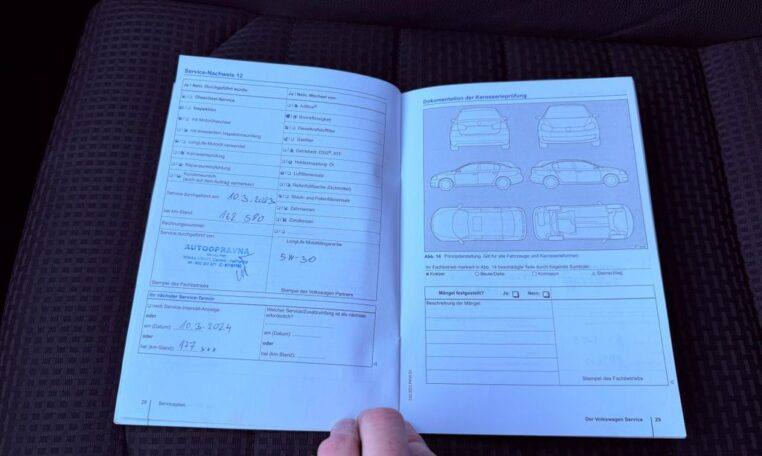 Service-Nachweis 12
Ja / Nein, Durchgeführt wurde:
Ölwechsel-Service
Inspektion
mit Motorölwechsel
mit erweitertem Inspektionsumfang
LongLife Motoröl verwendet
Karosserieprüfung
Reparaturempfehlung
Kundenwunsch
(auch auf dem Auftrag vermerken)
Service durchgeführt am: 10.3.2023
bei km-Stand: 162 580
Rechnungsnummer:
Service durchgeführt von:
AUTOOPRAVNA
Stempel des Fachbetriebs
Ja / Nein, Wechsel von:
AdBlue®
Bremsflüssigkeit
Dieselkraftstofffilter
Gasfilter
Haldexkupplung
Luftfiltereinsatz
Reifenfüllflasche (Dichtmittel)
Staub- und Pollenfiltereinsatz
Zahnriemen
Zündkerzen
LongLife Mobilitätsgarantie
5W-30
Stempel des Volkswagen Partners
Ihr nächster Service-Termin
nach Service-Intervall-Anzeige
oder
am (Datum): 10.3.2024
oder
bei (km-Stand): 177 xxx
Welcher Service/Zusatzumfang ist als nächstes
erforderlich?
am (Datum):
oder
bei (km-Stand):
28 Serviceplan
Dokumentation der Karosserieprüfung
Abb. 14 Prinzipdarstellung: Gilt für alle Fahrzeuge und Karosserieformen.
Ihr Fachbetrieb markiert in Abb. 14 beschädigte Teile durch folgende Symbole:
Kratzer Beule/Delle Korrosion Steinschlag
Mängel festgestellt? Ja: Nein:
Beschreibung der Mängel:
Stempel des Fachbetriebs
Der Volkswagen Service 29